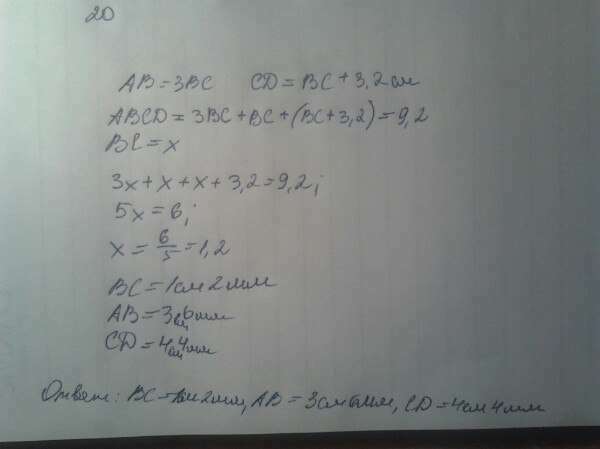 20
AB = 3BC CD = BC + 3,2 см
ABCD = 3BC + BC + (BC + 3,2) = 9,2
BC = x
3x + x + x + 3,2 = 9,2;
5x = 6;
x = 6/5 = 1,2
BC = 1см 2мм
AB = 3см 6мм
CD = 4см 4мм
Ответ: BC = 1см 2мм, AB = 3см 6мм, CD = 4см 4мм